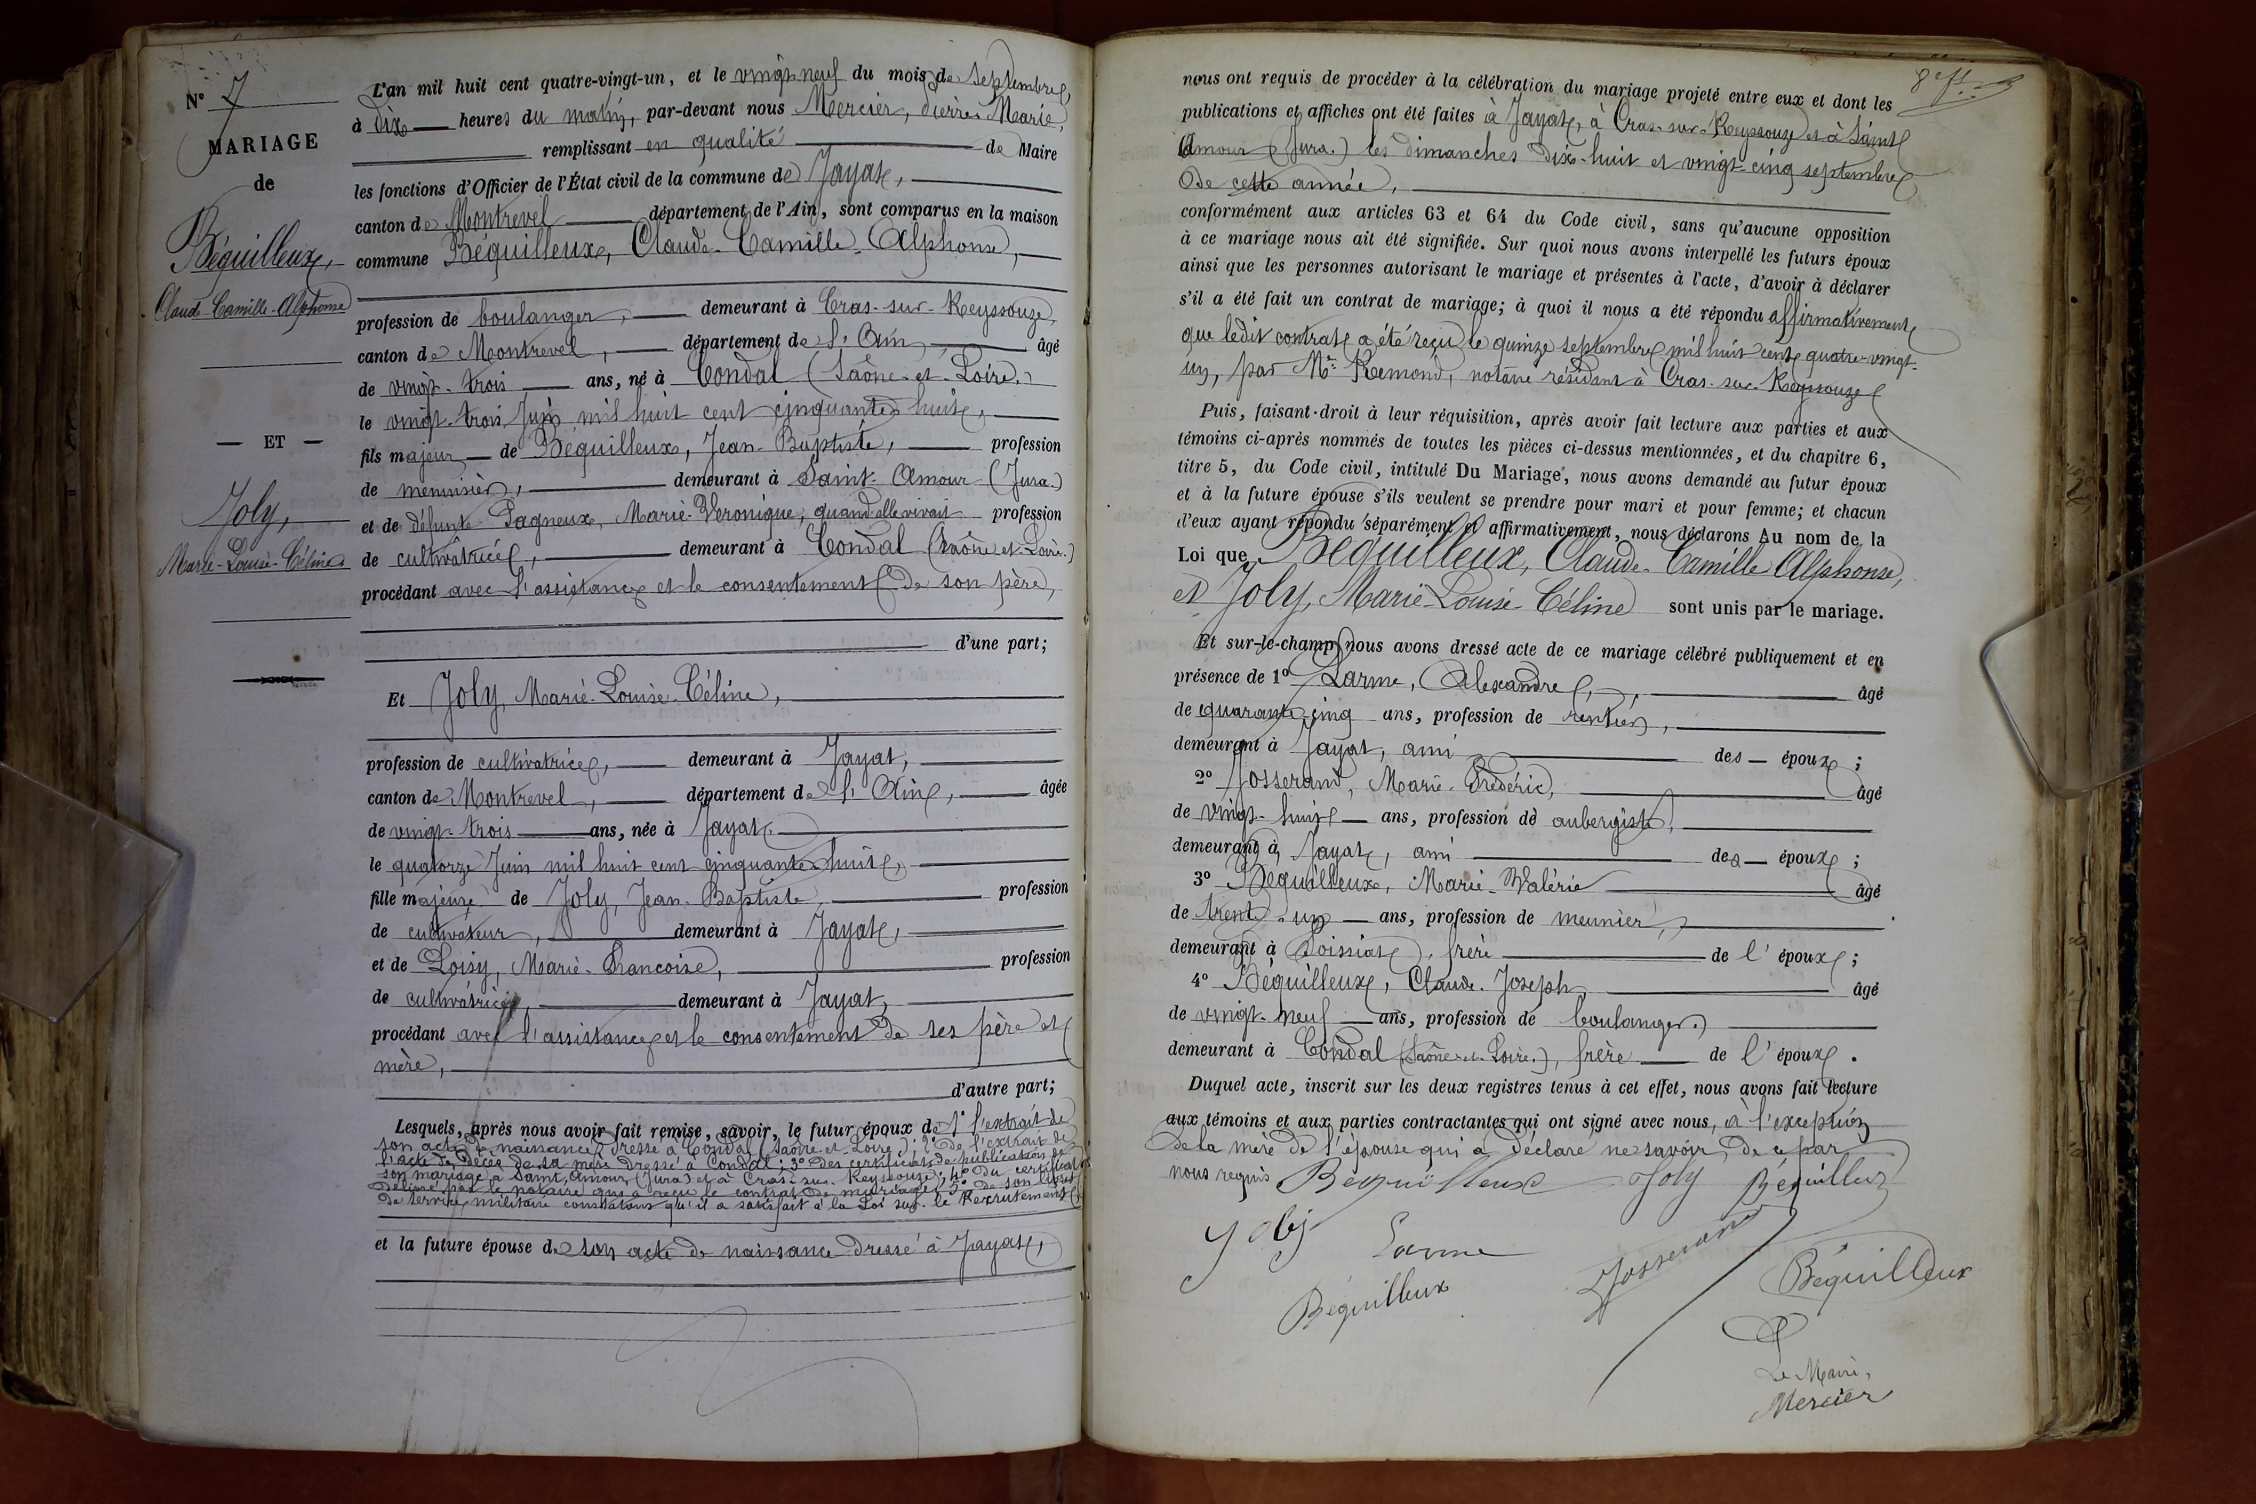 N° 7
MARIAGE
de
Béquilleux,
Claude-Camille-Alphonse
— ET —
Joly,
Marie-Louise-Céline
L'an mil huit cent quatre-vingt-un, et le vingt-neuf du mois de septembre,
à dix heures du matin, par-devant nous Mercier, Pierre Marie,
remplissant en qualité de Maire
les fonctions d'Officier de l'État civil de la commune de Jayat,
canton de Montrevel département de l'Ain, sont comparus en la maison
commune Béquilleux, Claude-Camille-Alphonse,
profession de boulanger, demeurant à Cras-sur-Reyssouze,
canton de Montrevel, département de l'Ain âgé
de vingt-trois ans, né à Condal (Saône-et-Loire.)
le vingt-trois Juin mil huit cent cinquante-huit,
fils majeur de Béquilleux, Jean-Baptiste, profession
de menuisier, demeurant à Saint-Amour (Jura.)
et de défunte Pagneux, Marie-Véronique, quand elle vivait profession
de cultivatrice, demeurant à Condal (Saône-et-Loire.)
procédant avec l'assistance et le consentement de son père,
d'une part;
Et Joly, Marie-Louise-Céline,
profession de cultivatrice, demeurant à Jayat,
canton de Montrevel, département de l'Ain, âgée
de vingt-trois ans, née à Jayat
le quatorze Juin mil huit cent cinquante-huit,
fille majeure de Joly, Jean-Baptiste, profession
de cultivateur, demeurant à Jayat,
et de Loisy, Marie-Françoise, profession
de cultivatrice, demeurant à Jayat,
procédant avec l'assistance et le consentement de ses père et
mère,
d'autre part;
Lesquels, après nous avoir fait remise, savoir, le futur époux de 1° l'extrait de
son acte de naissance dressé à Condal (Saône-et-Loire); 2° de l'extrait de
l'acte de décès de sa mère dressé à Condal; 3° des certificats de publication de
son mariage à Saint-Amour (Jura) et à Cras-sur-Reyssouze; 4° du certificat
délivré par le notaire qui a reçu le contrat de mariage; 5° de son livret
de service militaire constatant qu'il a satisfait à la Loi sur le Recrutement
et la future épouse de son acte de naissance dressé à Jayat,
8e ft.
nous ont requis de procéder à la célébration du mariage projeté entre eux et dont les
publications et affiches ont été faites à Jayat, à Cras-sur-Reyssouze et à Saint
Amour (Jura.) les dimanches dix-huit et vingt-cinq septembre
de cette année,
conformément aux articles 63 et 64 du Code civil, sans qu'aucune opposition
à ce mariage nous ait été signifiée. Sur quoi nous avons interpellé les futurs époux
ainsi que les personnes autorisant le mariage et présentes à l'acte, d'avoir à déclarer
s'il a été fait un contrat de mariage; à quoi il nous a été répondu affirmativement
que ledit contrat a été reçu le quinze septembre mil huit cent quatre-vingt-
un, par Me Remond, notaire résidant à Cras-sur-Reyssouze
Puis, faisant droit à leur réquisition, après avoir fait lecture aux parties et aux
témoins ci-après nommés de toutes les pièces ci-dessus mentionnées, et du chapitre 6,
titre 5, du Code civil, intitulé Du Mariage, nous avons demandé au futur époux
et à la future épouse s'ils veulent se prendre pour mari et pour femme; et chacun
d'eux ayant répondu séparément et affirmativement, nous déclarons Au nom de la
Loi que Béquilleux, Claude-Camille Alphonse,
et Joly, Marie-Louise-Céline sont unis par le mariage.
Et sur-le-champ nous avons dressé acte de ce mariage célébré publiquement et en
présence de 1° Larme, Alexandre, âgé
de quarante-cinq ans, profession de rentier,
demeurant à Jayat, ami des époux;
2° Josserand, Marie-Frédéric, âgé
de vingt-huit ans, profession de aubergiste,
demeurant à Jayat, ami des époux;
3° Béquilleux, Marie-Valérie âgé
de trente-un ans, profession de meunier,
demeurant à Poissiat, frère de l'époux;
4° Béquilleux, Claude-Joseph, âgé
de vingt-neuf ans, profession de boulanger,
demeurant à Condal (Saône-et-Loire.), frère de l'époux.
Duquel acte, inscrit sur les deux registres tenus à cet effet, nous avons fait lecture
aux témoins et aux parties contractantes qui ont signé avec nous, à l'exception
de la mère de l'épouse qui a déclaré ne savoir, de ce par
nous requis Bequilleux Joly Béquilleux
Joly Larme Josserand Béquilleux
Béquilleux
Le Maire,
Mercier